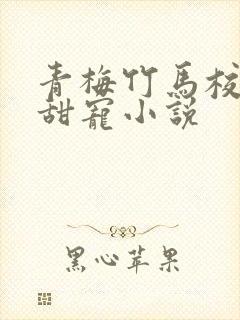 青梅竹馬校
甜寵小説
黑心苹果